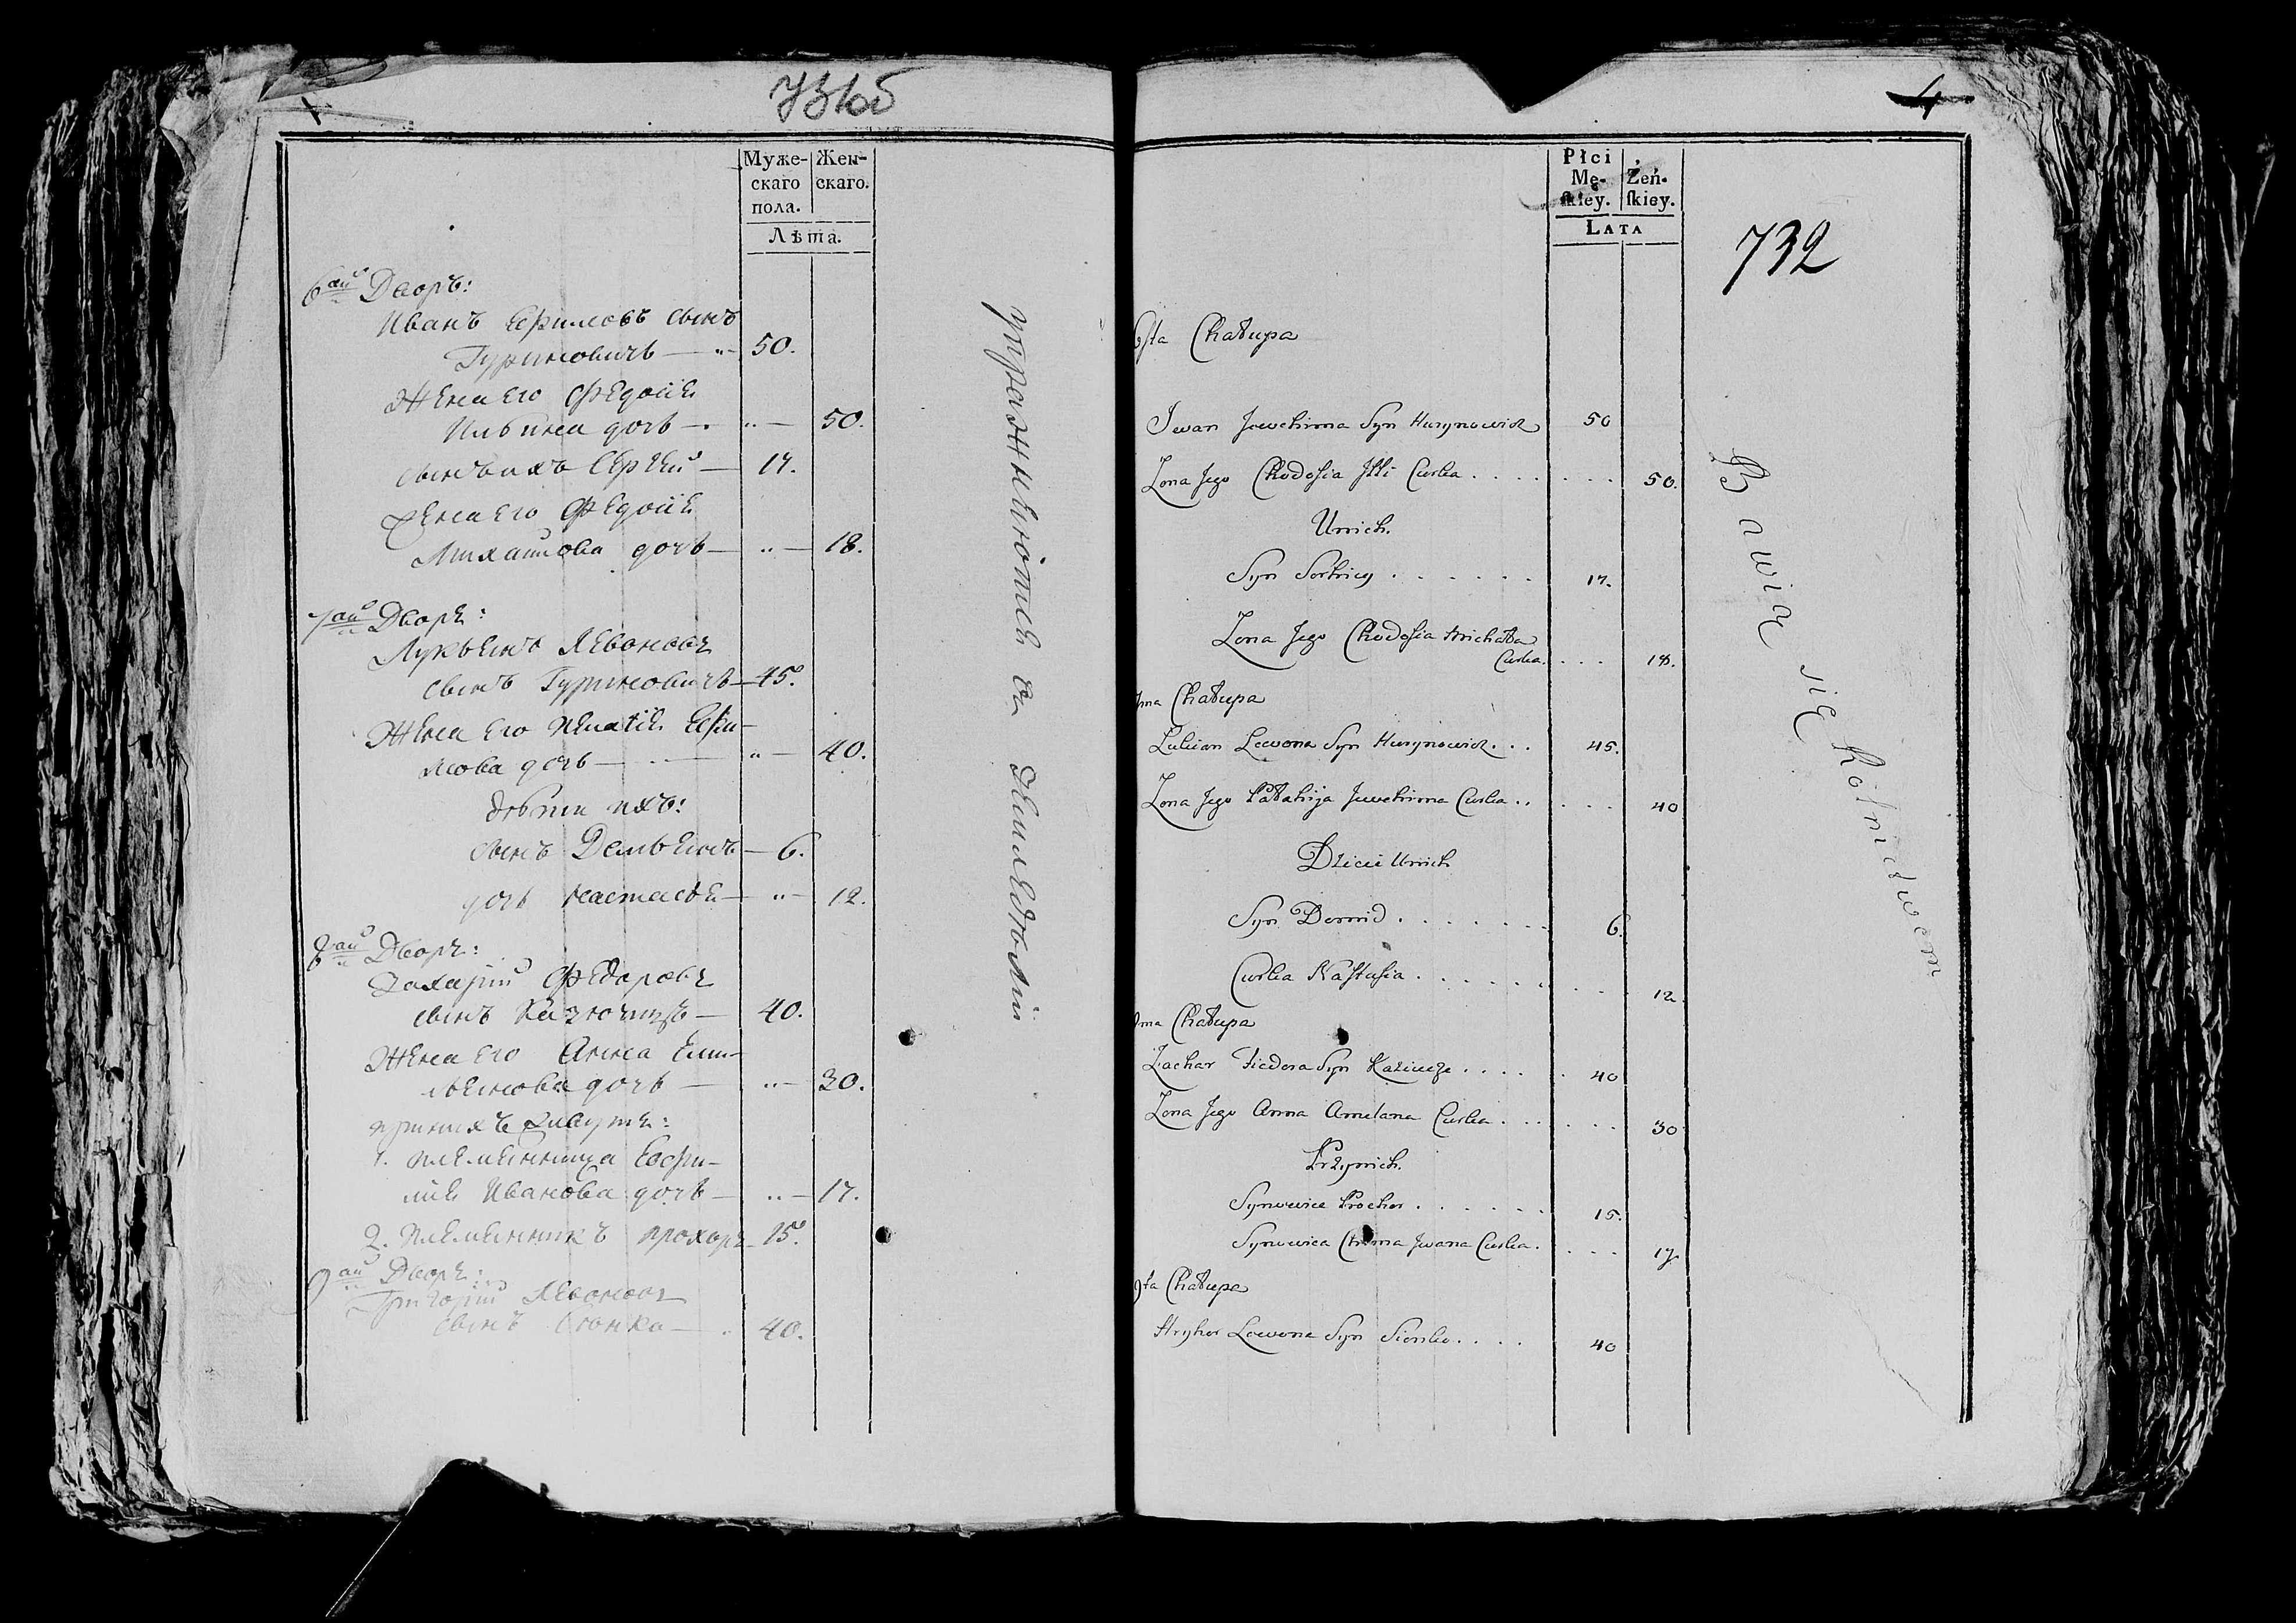 731об
Муже-
скаго
пола.
Жен-
скаго.
Лѣта.
6ай Дворъ:
Иванъ Ефимовъ сынъ
Гуриновичъ — 50.
Жена его Федосія
Ильина дочь — 50.
сынъ ихъ Сергей — 17.
Жена его Федосія
Михайлова дочь — 18.
7ай Дворъ:
Лукьянъ Левоновъ
сынъ Гуриновичъ — 45.
Жена его Палагія Ефи-
мова дочь — 40.
дѣти ихъ:
сынъ Демьянъ — 6.
дочь Настасья — 12.
8ай Дворъ:
Захарій Федоровъ
сынъ — 40.
Жена его Анна Еми-
льянова дочь — 30.
при нихъ живутъ:
1. племянница Евфи-
мія Иванова дочь — 17.
2. племянникъ Прохоръ — 15.
9ай Дворъ:
Григорій Левоновъ
сынъ Сонко — 40.
упражняются въ земледѣліи
4
732
Płci
Mę-
skiey.
Żeń-
skiey.
LATA
6sta Chałupa
Iwan Jowchima Syn Hurynowicz 50
Zona Jego Chodosia Illi Curka . . . . . . . 50.
U nich.
Syn Serhiey . . . . . . 17.
Zona Jego Chodosia Michała
Curka. . . . 18.
ma Chałupa
Lukian Lewona Syn Hurynowicz. . . 45.
Zona Jego Pałahija Jowchima Curka . . . . . 40
Dzieci U nich
Syn Demid . . . . . . . 6.
Curka Nastusia . . . . . . . . . 12
ma Chałupa
Zachar Fiedora Syn . . . . . 40
Zona Jego Anna Amelana Curka . . . . . . 30
Przy nich.
Synowiec Prochor . . . . . . 15.
Synowica Iwana Curka. . . . 17
9ta Chałupa
Hryhor Lewona Syn Sionko. . . . 40
Bawią się Rolnictwem